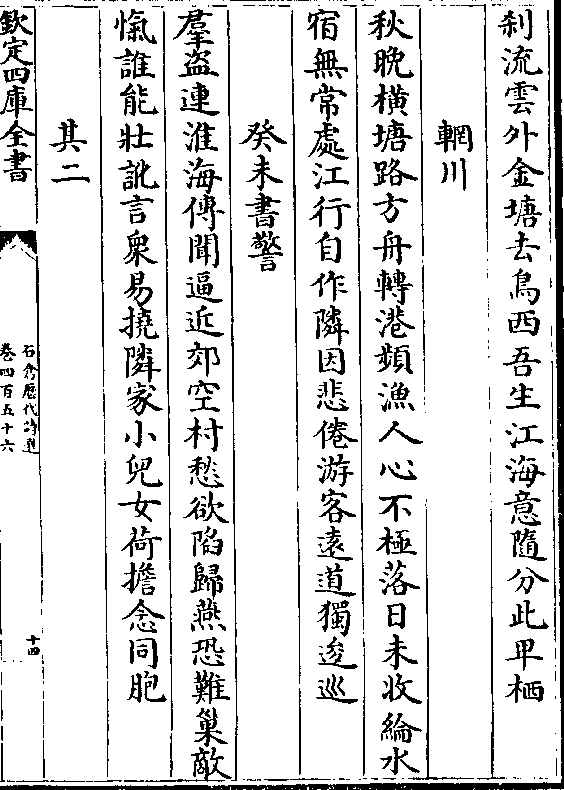 刹流雲外金塘去鳥西吾生江海意隨分此卑栖
輞川
秋晚橫塘路方舟轉港頻漁人心不極落日未收綸水
宿無常處江行自作隣因悲倦游客遠道獨逡巡
癸未書警
羣盜連淮海傳聞逼近郊空村愁欲陷歸燕恐難巢敵
愾誰能壯訛言衆易撓隣家小兒女荷擔念同胞
其二
欽定四庫全書
石倉歷代詩選
卷四百五十六
十四